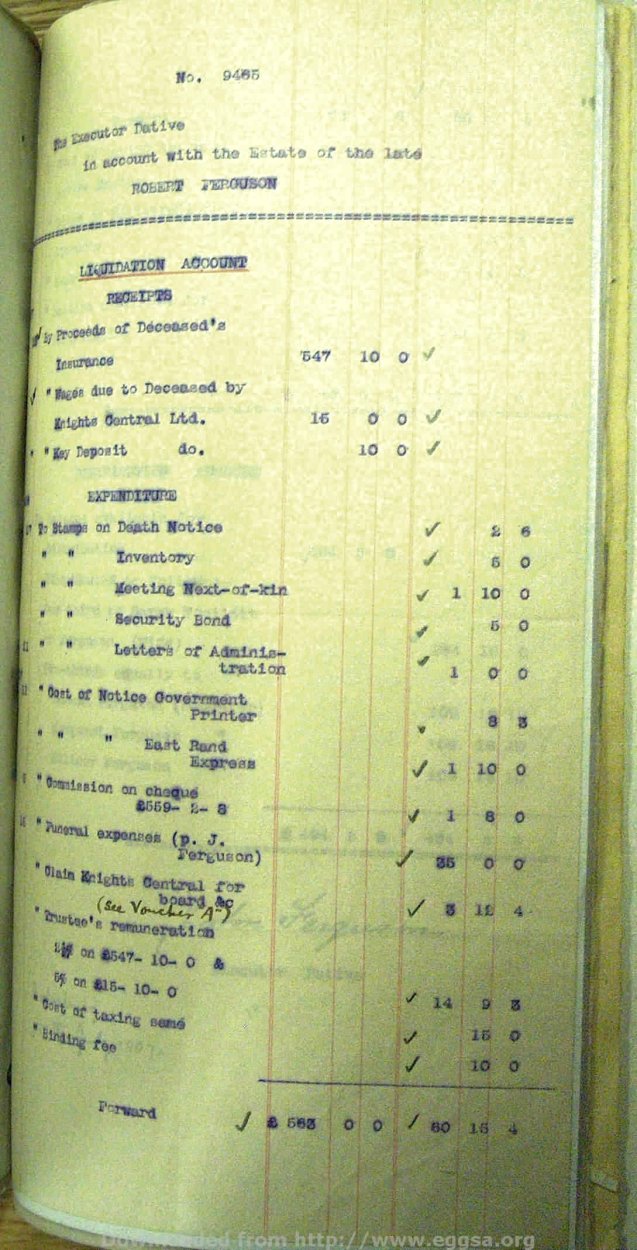 No. 9465
The Executor Dative
in account with the Estate of the late
ROBERT FERGUSON
LIQUIDATION ACCOUNT
RECEIPTS
By Proceeds of Deceased's
Insurance 547 10 0 ✓
" Wages due to Deceased by
Knights Central Ltd. 15 0 0 ✓
" Key Deposit do. 10 0 ✓
EXPENDITURE
To Stamps on Death Notice ✓ 2 6
" " Inventory ✓ 5 0
" " Meeting Next-of-kin ✓ 1 10 0
" " Security Bond ✓ 5 0
" " Letters of Adminis-
tration ✓ 1 0 0
" Cost of Notice Government
Printer ✓ 8 3
" " " East Rand
Express ✓ 1 10 0
" Commission on cheque
£559- 2- 8 ✓ 1 8 0
" Funeral expenses (p. J.
Ferguson) ✓ 35 0 0
" Claim Knights Central for
board &c ✓ 3 12 4
(See Voucher "A")
" Trustee's remuneration
2½% on £547- 10- 0 &
5% on £15- 10- 0 ✓ 14 9 3
" Cost of taxing same ✓ 15 0
" Binding fee ✓ 10 0
Forward ✓ £ 563 0 0 ✓ 60 15 4
Downloaded from http://www.eggsa.org